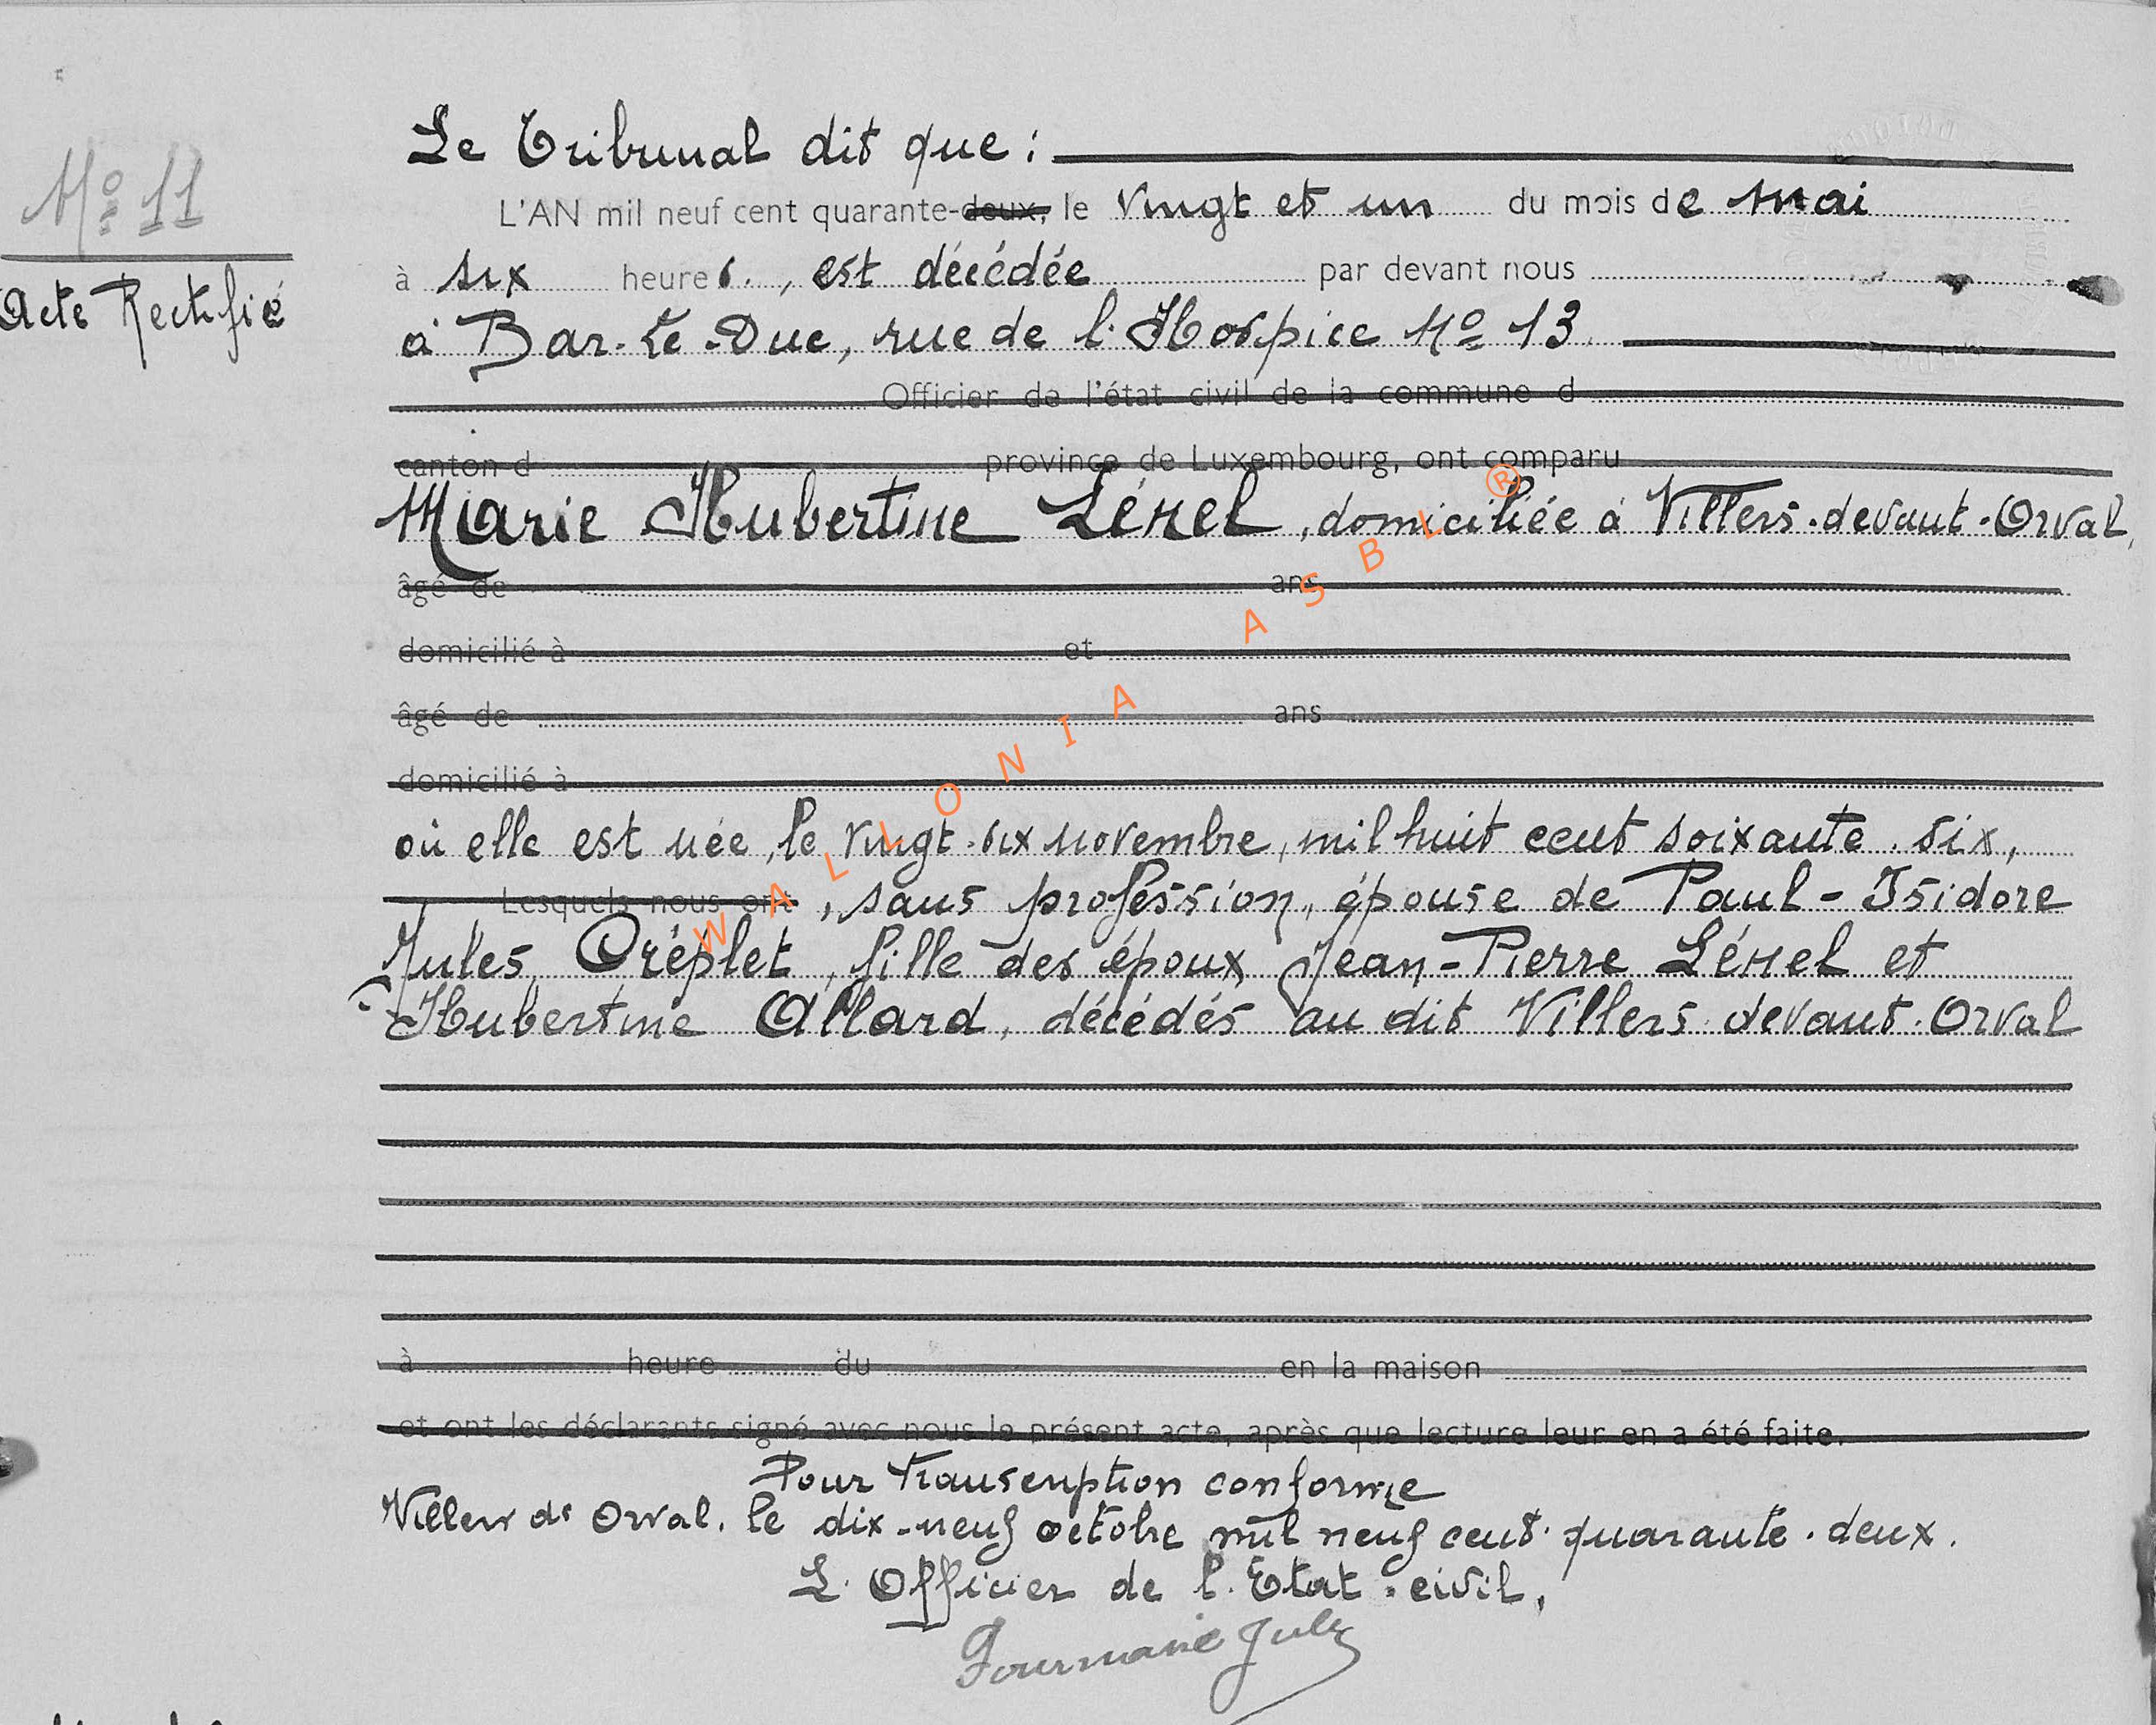 Nº 11
Acte Rectifié
Le Tribunal dit que :
L'AN mil neuf cent quarante-deux, le vingt et un du mois de mai
à six heures, est décédée par devant nous
à Bar-Le-Duc, rue de l'Hospice Nº 13
Officier de l'état civil de la commune d
canton d province de Luxembourg, ont comparu
Marie Hubertine Lénel, domiciliée à Villers-devant-Orval,
âgé de ans
domicilié à et
âgé de ans
domicilié à
où elle est née, le vingt-six novembre, mil huit cent soixante-six,
Lesquels nous ont , sans profession, épouse de Paul-Isidore
Jules, fille des époux Jean-Pierre Lénel et
Hubertine Allard, décédés au dit Villers-devant-Orval
à heure du en la maison
et ont les déclarants signé avec nous le présent acte, après que lecture leur en a été faite.
Pour transcription conforme
Villers dt Orval, le dix-neuf octobre mil neuf cent quarante-deux.
L'Officier de l'Etat-civil,
Jules
WALLONIA ASBL ®